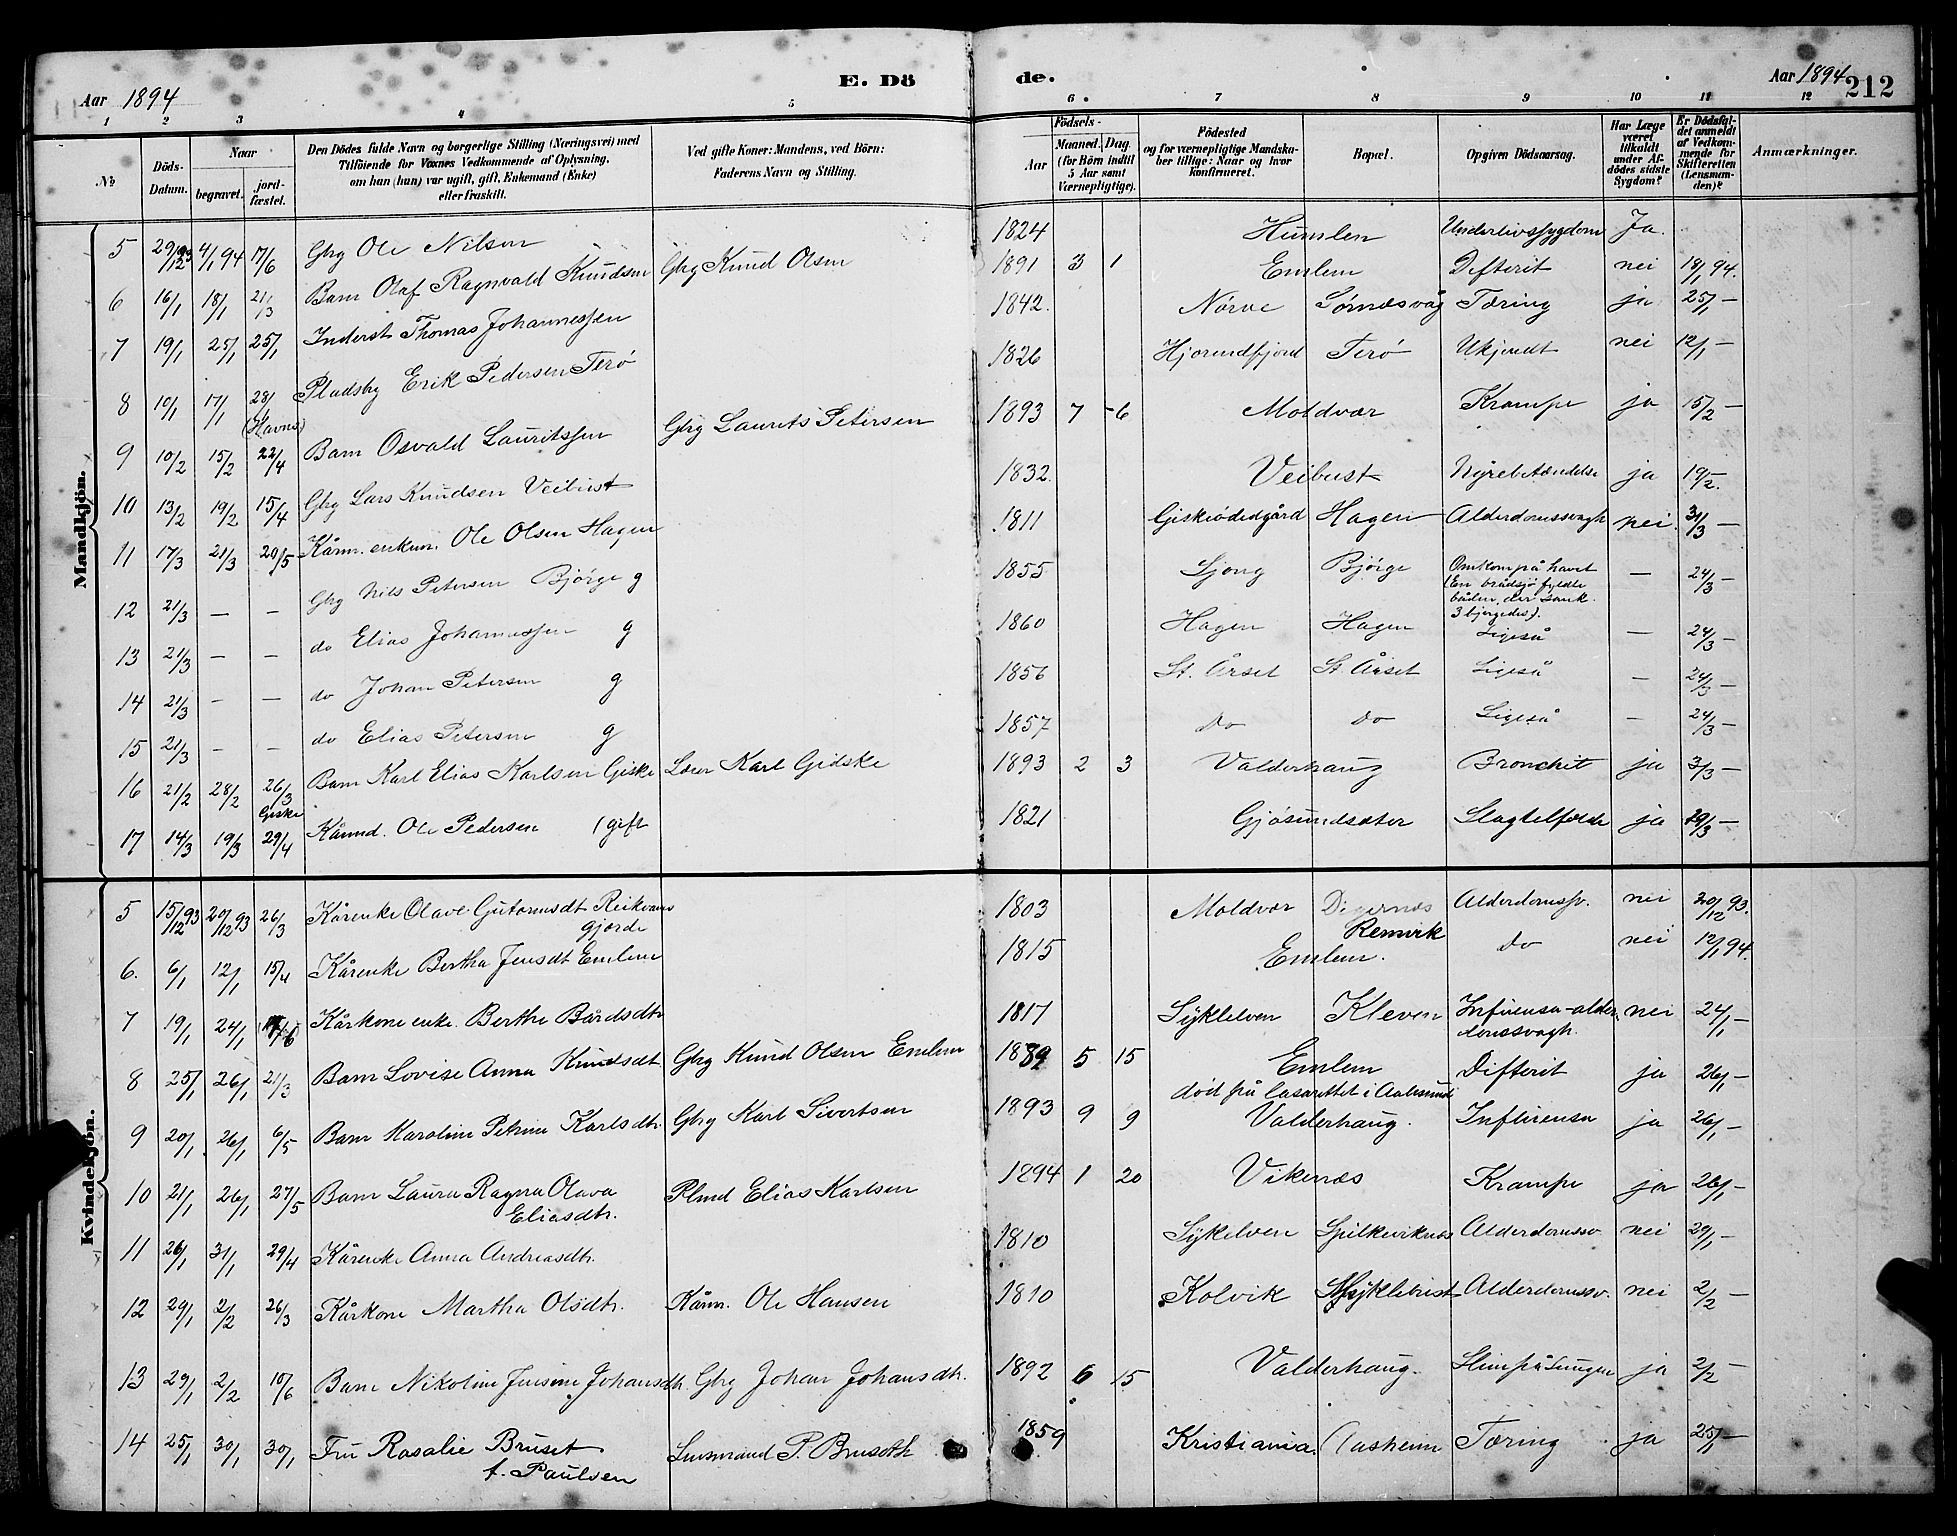 Aar 1894 E. Dö de. Aar 1894 212
1 2 3 4 5 6 7 8 9 10 11 12
No Döds-Datum. Naar begravet. jord-fæstet. Den Dödes fulde Navn og borgerlige Stilling (Næringsvei) med Tilföiende for Voxnes Vedkommende af Oplysning, om han (hun) var ugift, gift, Enkemand (Enke) eller fraskilt. Ved gifte Koner: Mandens, ved Börn: Faderens Navn og Stilling. Födsels- Aar Maaned. Dag. (for Börn indtil 5 Aar samt Værnepligtige). Födested og for værnepligtige Mandskaber tillige: Naar og hvor konfirmeret. Bopæl. Opgiven Dödsaarsag. Har Læge været tilkaldt under Afdödes sidste Sygdom? Er Dödsfaldet anmeldt af Vedkommende for Skifteretten (Lensmanden)? Anmærkninger.
Mandkjön.
5 29/12 93 4/1 94 17/6 Gbg Ole Nilsen 1824 Humlen Underlivssygdom Ja.
6 16/1 18/1 21/3 Barn Olaf Ragnvald Knudsen Gbg Knud Olsen 1891 3 1 Emlem Difterit nei 18/1 94.
7 19/1 25/1 25/1 Inderst Thomas Johannessen 1842. Nørve Sørnæsvåg Tæring ja 25/1 —
8 10/1 17/1 28/1 (Havnø) Pladsbg Erik Pedersen Terö 1826 Hjorundfjord Terö Ukjendt nei 12/1 —
9 10/2 15/2 22/4 Barn Osvald Lauritssen Gbg Laurits Petersen 1893 7 -6 Moldvær Krampe ja 15/2 —
10 13/2 19/2 15/4 Gbg Lars Knudsen Veibust 1832. Veibust Nyrebetændelse ja 19/2.
11 17/3 21/3 20/5 Kårm. enkem. Ole Olsen Hagen 1811 Giskeødegård Hagen Alderdomssvagh nei. 31/3 —
12 21/3 — — Gbg Nils Petersen Bjørge g 1855 Ljong Bjørge Omkom på havet (En brådsjø fyldte båden, der sank. 3 bjergedes). — 24/3 —
13 21/3 — — do Elias Johannessen g 1860 Hagen Hagen Ligeså — 24/3 —
14 21/3 — — do Johan Petersen g 1856 St. Årset St. Årset Ligeså — 24/3 —
15 21/3 — — do Elias Petersen g 1857 do do Ligeså — 24/3 —
16 21/2 28/2 26/3 Giske Barn Karl Elias Karlsen Giske Lærer Karl Gidske 1893 2 3 Valderhaug Bronchit ja 3/3 —
17 14/3 19/3 29/4 Kårmd. Ole Pedersen (gift 1821 Gjøsundsæter Slagtelfælde ja 29/3 —
Kvindekjön.
5 15/12 93 20/12 93 26/3 Kårenke Olave Gutormsdt Reikvams gjerde 1803 Moldvær Digernæs Remvik Alderdomssv. nei 20/12 93.
6. 6/1 12/1 15/4 Kårenke Bertha Jensdt Emlem 1815 Emlem. do nei 12/1 94.
7 19/1 24/1 Kårkone enke. Berthe Bårdsdtr 1817 Sykkelven Kleven Influensa-alderdomssvagh. nei 24/1 —
8 25/1 26/1 21/3 Barn Lovise Anna Knudsdt. Gbg Knud Olsen Emlem 1889 5 15 Emlem død på lasarettet i Aalesund Difterit ja 26/1 —
9 20/1 26/1 6/5 Barn Karoline Petrine Karlsdtr. Gbg Karl Sivertsen 1893 9 9 Valderhaug. Influensa ja 26/1 —
10 21/1 26/1 27/5 Barn Laura Ragna Olava Eliasdtr. Plmd Elias Karlsen 1894 1 20 Vikenæs Krampe ja 26/1 —
11 26/1 31/1 29/4 Kårenke Anna Andreasdtr. 1810 Sykelven Spilkeviknæs Alderdomssv nei 29/1 —
12 29/1 2/2 26/3 Kårkone Martha Olsdtr. Kårm. Ole Hansen 1810 Kolvik Myklebust Alderdomssv. nei 2/2 —
13 29/1 2/2 10/6 Barn Nikoline Jensine Johansdtr. Gbg Johan Johansdtr. 1892 6 15 Valderhaug. Slim på Lunger ja 2/2 —
14 25/1 30/1 30/1 Fru Rosalie Bruset f. Paulsen Lensmand P. Bruseth 1859 Kristiania. Aasheim Tæring ja 25/1 —